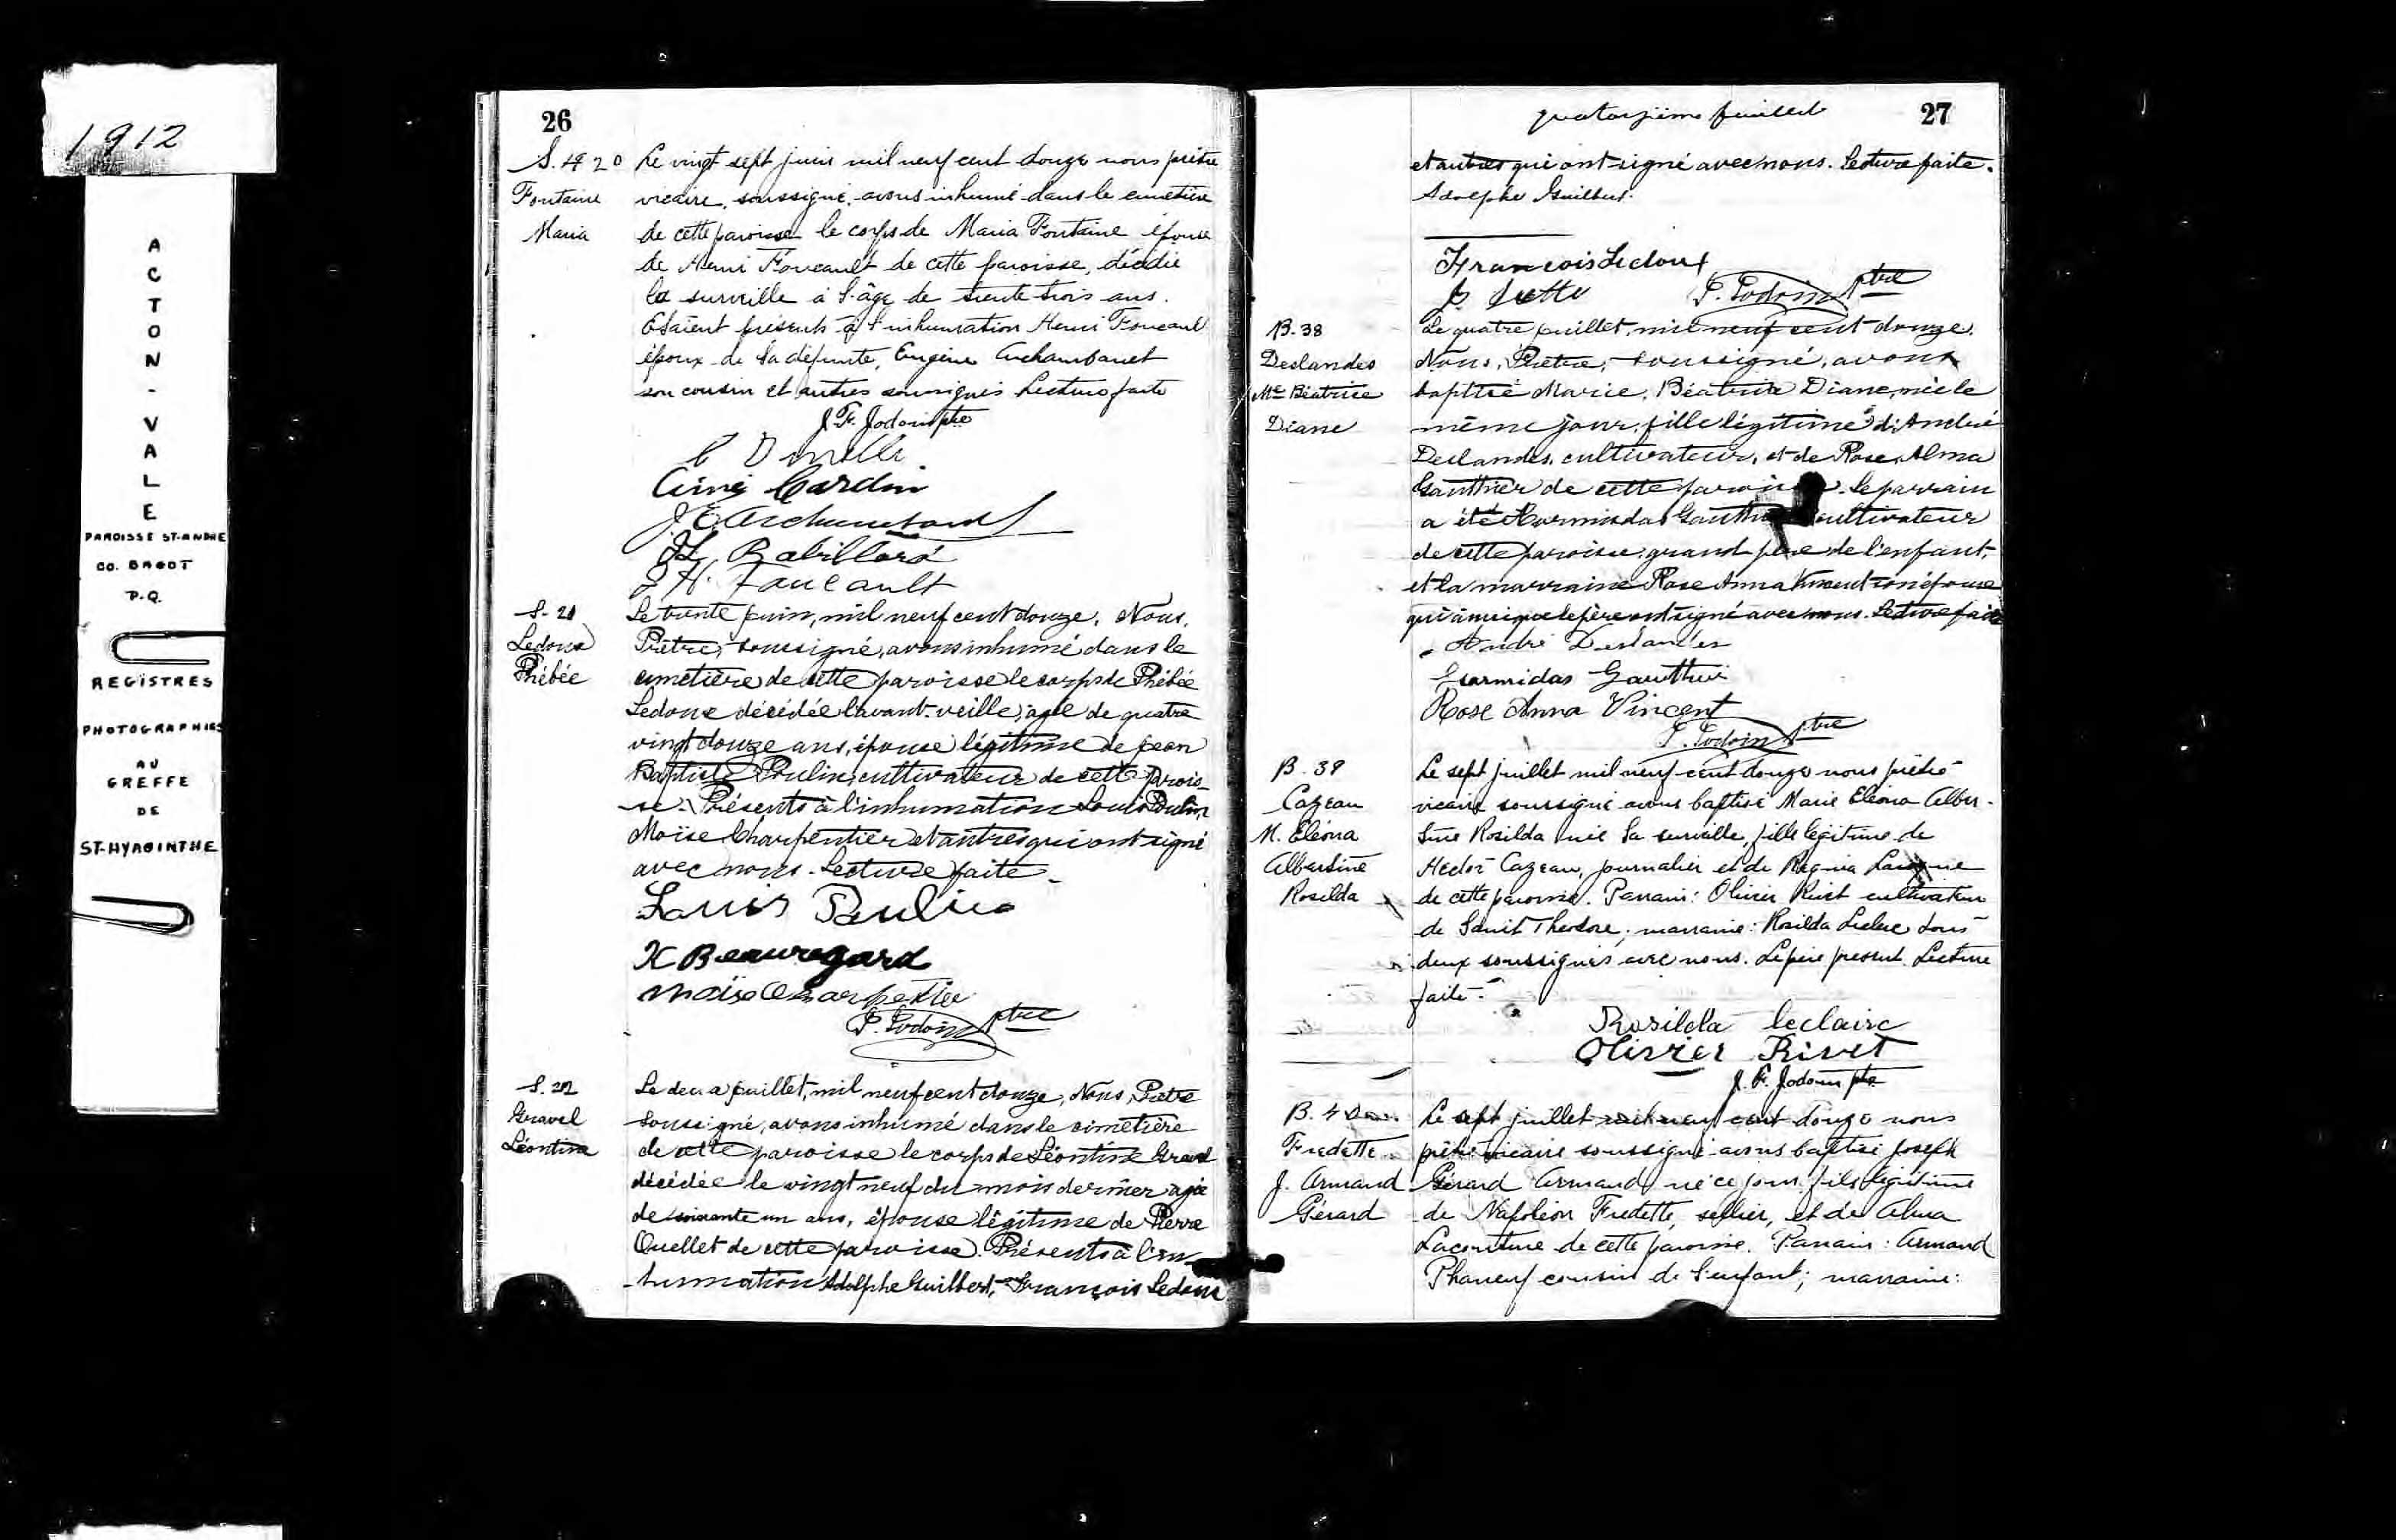 1912
ACTON-VALE
PAROISSE ST-ANDRE
CO. BAGOT
P.Q.
REGISTRES
PHOTOGRAPHIES
AU
GREFFE
DE
ST-HYACINTHE
26
S. 20
Fontaine
Maria
Le vingt sept juin mil neuf cent douze nous prêtre
vicaire, soussigné, avons inhumé dans le cimetière
de cette paroisse le corps de Maria Fontaine épouse
de Henri Foucault de cette paroisse, décédée
la surveille à l'âge de trente trois ans.
Etaient présents à l'inhumation Henri Foucault
époux de la défunte, Eugène Archambault
son cousin et autres soussignés Lecture faite
J. F. Jodoin ptre
Aimé Cardin
J. E. Archambault
Robillard
J H. Foucault
S. 21
Ledoux
Phébée
Le trente juin, mil neuf cent douze, Nous,
Prêtre, soussigné, avons inhumé dans le
cimetière de cette paroisse le corps de Phébée
Ledoux décédée l'avant-veille, agée de quatre
vingt douze ans, épouse légitime de Jean
Baptiste Poulin, cultivateur de cette parois-
se. Présents à l'inhumation Louis Poulin,
Moïse Charpentier et autres qui ont signé
avec nous. Lecture faite.
Louis Paulin
X Beauregard
Moïse Charpentier
P. Jodoin Ptre
S. 22
Gravel
Léontine
Le deux juillet, mil neuf cent douze, Nous, Prêtre
soussigné, avons inhumé dans le cimetière
de cette paroisse le corps de Léontine Gravel
décédée le vingt neuf du mois dernier agée
de soixante un ans, épouse légitime de Pierre
Ouellet de cette paroisse. Présents à l'in-
humation Adolphe Guilbert, François Ledoux
quatorzième feuillet 27
et autres qui ont signé avec nous. Lecture faite.
Adolphe Guilbert.
François Ledoux
P. Jodoin Ptre
B. 38
Deslandes
Me Béatrice
Diane
Le quatre juillet, mil neuf cent douze.
Nous, Prêtre, soussigné, avons
baptisé Marie, Béatrice Diane, née le
même jour, fille légitime d'André
Deslandes, cultivateur, et de Rose, Alma
Gauthier de cette paroisse. Le parrain
a été Hormisdas Gauthier cultivateur
de cette paroisse, grand-père de l'enfant,
et la marraine Rose Anna Vincent son épouse
qui ainsi que le père ont signé avec nous. Lecture faite
André Deslandes
Hormidas Gauthier
Rose Anna Vincent
P. Jodoin Ptre
B. 39
Cazeau
M. Eléona
Albertine
Rosilda
Le sept juillet mil neuf cent douze nous prêtre
vicaire soussigné avons baptisé Marie Eléona Alber-
tine Rosilda née la surveille, fille légitime de
Hector Cazeau, journalier et de Régina
de cette paroisse. Parrain: Olivier Rivet cultivateur
de Saint Théodore; marraine: Rosilda Leclerc tous
deux soussignés avec nous. Le père présent. Lecture
faite.
Rosilda leclairc
Olivier Rivet
J. F. Jodoin ptr
B. 40
Fredette
J. Armand
Gérard
Le sept juillet mil neuf cent douze nous
prêtre vicaire soussigné avons baptisé Joseph
Gérard Armand, né ce jour fils légitime
de Napoléon Fredette, sellier, et de Alma
Lacouture de cette paroisse. Parrain: Armand
Phaneuf cousin de l'enfant; marraine: